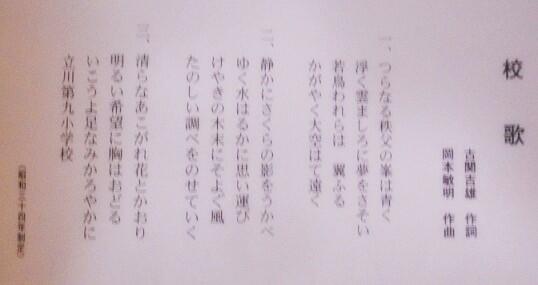 校歌
古関吉雄 作詞
岡本敏明 作曲
一、つらなる秩父の峯は青く
浮く雲ましろに夢をさそい
若鳥われらは 翼ふる
かがやく大空はて遠く
二、静かにさくらの影をうかべ
ゆく水はるかに思い運び
けやきの木末にそよぐ風
たのしい調べをのせていく
三、清らなあこがれ花とかおり
明るい希望に胸はおどる
いこうよ足なみかろやかに
立川第九小学校
(昭和三十四年制定)